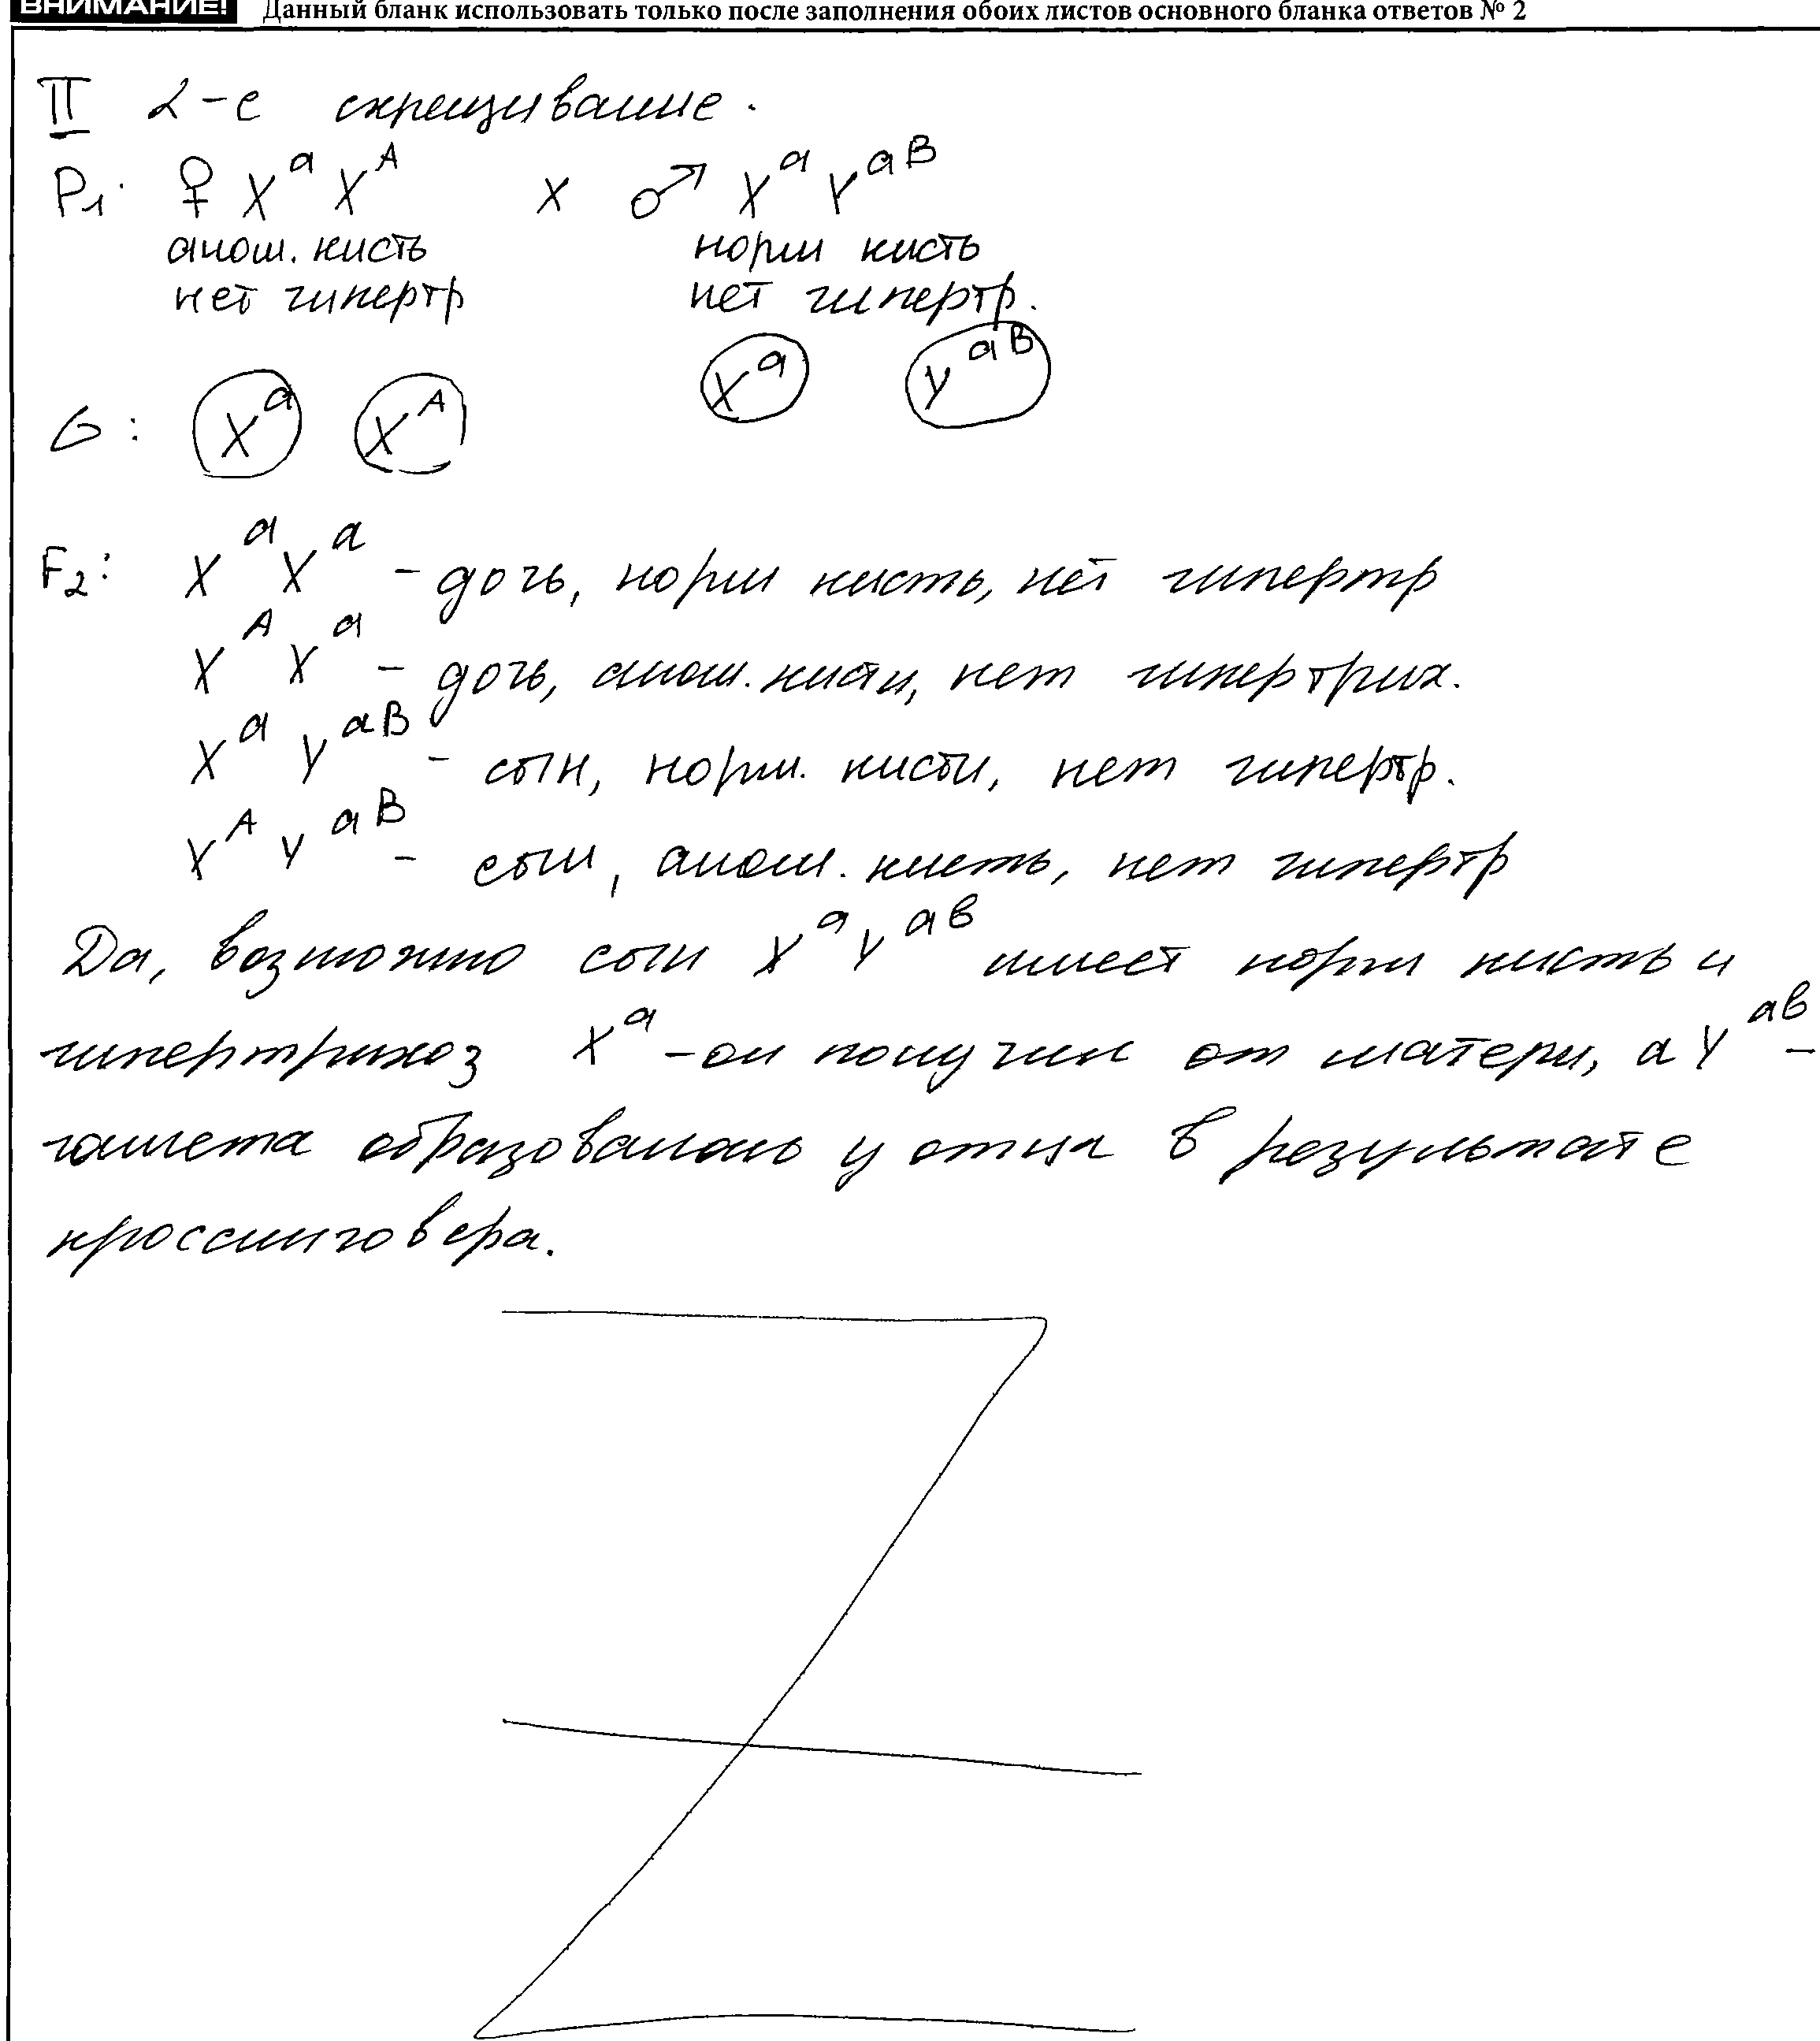 ВНИМАНИЕ! Данный бланк использовать только после заполнения обоих листов основного бланка ответов № 2
II 2-е скрещивание.
P₁: ♀ Xᵃ Xᴬ x ♂ Xᵃ Yᵃᴮ
аном. кисть норм кисть
нет гипертр нет гипертр.
G: Xᵃ Xᴬ Xᵃ Yᵃᴮ
F₂: Xᵃ Xᵃ – дочь, норм кисть, нет гипертр
Xᴬ Xᵃ – дочь, аном. кисти, нет гипертрих.
Xᵃ Yᵃᴮ – сын, норм. кисти, нет гипертр.
Xᴬ Yᵃᴮ – сын, аном. кисть, нет гипертр
Да, возможно сын Xᵃ Yᵃᵇ имеет норм кисть и
гипертрихоз Xᵃ – он получил от матери, а Yᵃᵇ –
гамета образовалась у отца в результате
кроссинговера.